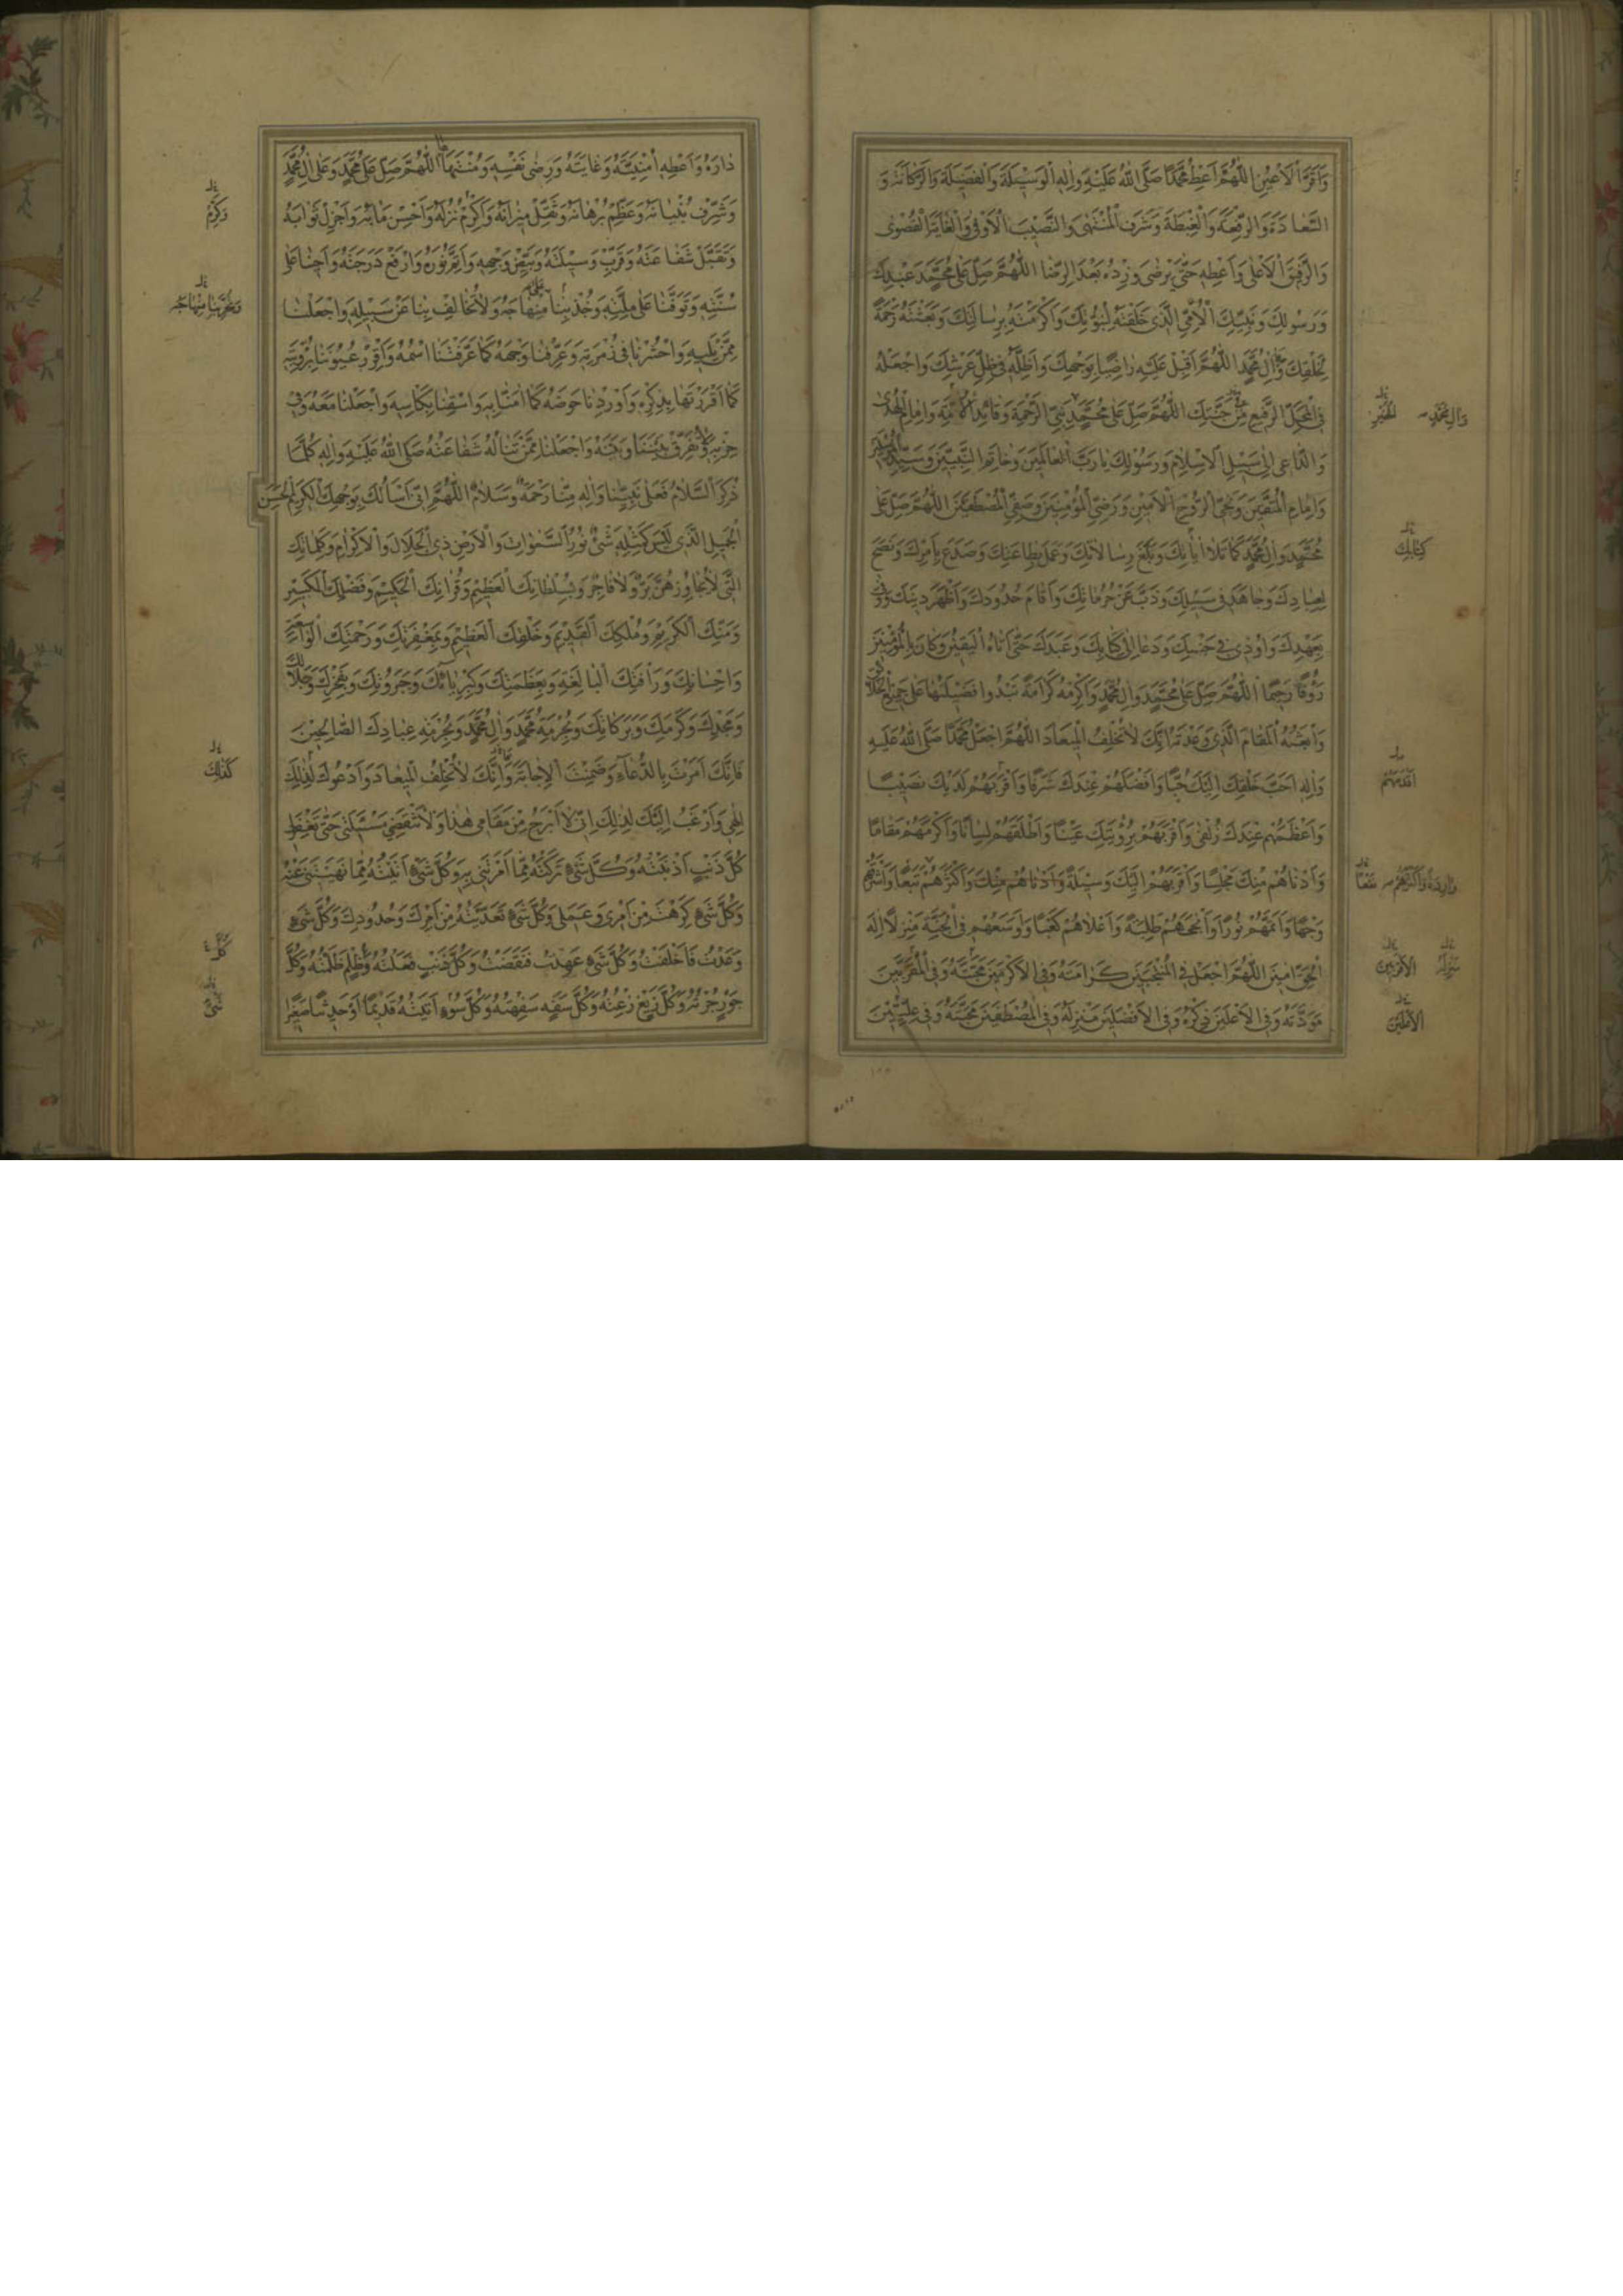 وَاَقَرَّ الْاَعْيُنِ اَللّٰهُمَّ اَعْطِ مُحَمَّدًا صَلَّى اللّٰهُ عَلَيْهِ وَاٰلِهِ الْوَسِيْلَةَ وَالْفَضِيْلَةَ وَ
السَّعَادَةَ وَالرِّفْعَةَ وَالْغِبْطَةَ وَشَرَفَ الْمُنْتَهٰى وَالنَّصِيْبَ الْاَوْفٰى وَالْغَايَةَ الْقُصْوٰى
وَالرَّفِيْقَ الْاَعْلٰى وَاَعْطِهِ حَتّٰى يَرْضٰى وَزِدْهُ بَعْدَ الرِّضَا اَللّٰهُمَّ صَلِّ عَلٰى مُحَمَّدٍ عَبْدِكَ
وَرَسُوْلِكَ وَنَبِيِّكَ الْاُمِّيِّ الَّذِى خَلَقْتَهُ لِنُبُوَّتِكَ وَاَكْرَمْتَهُ بِرِسَالَتِكَ وَبَعَثْتَهُ رَحْمَةً
لِخَلْقِكَ وَاٰلِ مُحَمَّدٍ اَللّٰهُمَّ اَقْبِلْ عَلَيْهِ رَاضِيًا بِوَجْهِكَ وَاَظِلَّهُ فِى ظِلِّ عَرْشِكَ وَاجْعَلْهُ
فِى الْمَحَلِّ الرَّفِيْعِ مِنْ جَنَّتِكَ اَللّٰهُمَّ صَلِّ عَلٰى مُحَمَّدٍ نَبِيِّ الرَّحْمَةِ وَقَائِدِ الْاُمَّةِ وَاِمَامِ الْهُدٰى
وَالدَّاعِى اِلٰى سَبِيْلِ الْاِسْلَامِ وَرَسُوْلِكَ يَا رَبَّ الْعَالَمِيْنَ وَخَاتَمِ النَّبِيِّيْنَ وَسَيِّدِ الْمُرْسَلِيْنَ
وَاِمَامِ الْمُتَّقِيْنَ وَنَجِيِّ الرُّوْحِ الْاَمِيْنِ وَرَضِيِّ الْمُؤْمِنِيْنَ وَصَفِيِّ الْمُصْطَفَيْنَ اَللّٰهُمَّ صَلِّ عَلٰى
مُحَمَّدٍ وَاٰلِ مُحَمَّدٍ كَمَا تَلَا اٰيَاتِكَ وَبَلَّغَ رِسَالَاتِكَ وَعَمِلَ بِطَاعَتِكَ وَصَدَعَ بِاَمْرِكَ وَنَصَحَ
لِعِبَادِكَ وَجَاهَدَ فِى سَبِيْلِكَ وَذَبَّ عَنْ حُرُمَاتِكَ وَاَقَامَ حُدُوْدَكَ وَاَظْهَرَ دِيْنَكَ وَوَفٰى
بِعَهْدِكَ وَاُوْذِىَ فِى جَنْبِكَ وَدَعَا اِلٰى كِتَابِكَ وَعَبَدَكَ حَتّٰى اَتَاهُ الْيَقِيْنُ وَكَانَ بِالْمُؤْمِنِيْنَ
رَؤُفًا رَحِيْمًا اَللّٰهُمَّ صَلِّ عَلٰى مُحَمَّدٍ وَاٰلِ مُحَمَّدٍ وَاَكْرِمْهُ كَرَامَةً تَبْدُوا فَضِيْلَتُهَا عَلٰى جَمِيْعِ الْخَلَائِقِ
وَابْعَثْهُ الْمَقَامَ الَّذِى وَعَدْتَهُ اِنَّكَ لَا تُخْلِفُ الْمِيْعَادَ اَللّٰهُمَّ اجْعَلْ مُحَمَّدًا صَلَّى اللّٰهُ عَلَيْهِ
وَاٰلِهِ اَحَبَّ خَلْقِكَ اِلَيْكَ حُبًّا وَاَفْضَلَهُمْ عِنْدَكَ شَرَفًا وَاَقْرَبَهُمْ لَدَيْكَ نَصِيْبًا
وَاَعْظَمَهُمْ عِنْدَكَ زُلْفٰى وَاَقْرَبَهُمْ بِرُؤْيَتِكَ عَيْنًا وَاَطْلَقَهُمْ لِسَانًا وَاَكْرَمَهُمْ مَقَامًا
وَاَدْنَاهُمْ مِنْكَ مَجْلِسًا وَاَقْرَبَهُمْ اِلَيْكَ وَسِيْلَةً وَاَدْنَاهُمْ مِنْكَ وَاَكْثَرَهُمْ تَبَعًا وَاَشْرَقَهُمْ
وَجْهًا وَاَتَمَّهُمْ نُوْرًا وَاَنْجَحَهُمْ طَلِبَةً وَاَعْلَاهُمْ كَعْبًا وَاَوْسَعَهُمْ فِى الْجَنَّةِ مَنْزِلًا اِلٰهَ
الْحَقِّ اٰمِيْنَ اَللّٰهُمَّ اجْعَلْ فِى الْمُنْتَجَبِيْنَ كَرَامَتَهُ وَفِى الْاَكْرَمِيْنَ مَحَبَّتَهُ وَفِى الْمُقَرَّبِيْنَ
مَوَدَّتَهُ وَفِى الْاَعْلَيْنَ ذِكْرَهُ وَفِى الْاَفْضَلِيْنَ مَنْزِلَهُ وَفِى الْمُصْطَفَيْنَ مَحَبَّتَهُ وَفِى عِلِّيِّيْنَ
وَاٰلِ مُحَمَّدٍ
الْخَيْرِ
كِتَابِكَ
اَقْدَمَهُمْ
مَنْزِلَةً
الْاَقْرَبِيْنَ
دَارَهُ وَاَعْطِهِ اُمْنِيَّتَهُ وَغَايَتَهُ وَرِضٰى نَفْسِهِ وَمُنْتَهَاهَا اَللّٰهُمَّ صَلِّ عَلٰى مُحَمَّدٍ وَعَلٰى اٰلِ مُحَمَّدٍ
وَشَرِّفْ بُنْيَانَهُ وَعَظِّمْ بُرْهَانَهُ وَثَقِّلْ مِيْزَانَهُ وَاَكْرِمْ نُزُلَهُ وَاَحْسِنْ مَاٰبَهُ وَاَجْزِلْ ثَوَابَهُ
وَتَقَبَّلْ شَفَاعَتَهُ وَقَرِّبْ وَسِيْلَتَهُ وَبَيِّضْ وَجْهَهُ وَاَتِمَّ نُوْرَهُ وَارْفَعْ دَرَجَتَهُ وَاَحْيِنَا عَلٰى
سُنَّتِهِ وَتَوَفَّنَا عَلٰى مِلَّتِهِ وَخُذْ بِنَا مِنْهَاجَهُ وَلَا تُخَالِفْ بِنَا عَنْ سَبِيْلِهِ وَاجْعَلْنَا
مِمَّنْ يَلِيْهِ وَاحْشُرْنَا فِى زُمْرَتِهِ وَعَرِّفْنَا وَجْهَهُ كَمَا عَرَّفْتَنَا اسْمَهُ وَاَقْرِرْ عُيُوْنَنَا بِرُؤْيَتِهِ
كَمَا اَقْرَرْتَهَا بِذِكْرِهِ وَاَوْرِدْنَا حَوْضَهُ كَمَا اٰمَنَّا بِهِ وَاسْقِنَا بِكَاْسِهِ وَاجْعَلْنَا مَعَهُ وَفِى
حِزْبِهِ وَلَا تُفَرِّقْ بَيْنَنَا وَبَيْنَهُ وَاجْعَلْنَا مِمَّنْ تَنَالُهُ شَفَاعَتُهُ صَلَّى اللّٰهُ عَلَيْهِ وَاٰلِهِ كُلَّمَا
ذُكِرَ السَّلَامُ فَعَلٰى نَبِيِّنَا وَاٰلِهِ مِنَّا رَحْمَةٌ وَسَلَامٌ اَللّٰهُمَّ اِنِّى اَسْاَلُكَ بِوَجْهِكَ الْكَرِيْمِ الْحَسَنِ
الْجَمِيْلِ الَّذِى لَيْسَ كَمِثْلِهِ شَىْءٌ نُوْرِ السَّمٰوَاتِ وَالْاَرْضِ ذِى الْجَلَالِ وَالْاِكْرَامِ وَكَلِمَاتِكَ
الَّتِى لَا يُجَاوِزُهُنَّ بَرٌّ وَلَا فَاجِرٌ وَبِسُلْطَانِكَ الْعَظِيْمِ وَقُرْاٰنِكَ الْحَكِيْمِ وَفَضْلِكَ الْكَبِيْرِ
وَمَنِّكَ الْكَرِيْمِ وَمُلْكِكَ الْقَدِيْمِ وَخَلْقِكَ الْعَظِيْمِ وَبِمَغْفِرَتِكَ وَرَحْمَتِكَ الْوَاسِعَةِ
وَاِحْسَانِكَ وَرَاْفَتِكَ الْبَالِغَةِ وَبِعَظَمَتِكَ وَكِبْرِيَائِكَ وَجَبَرُوْتِكَ وَبِفَخْرِكَ وَجَلَالِكَ
وَمَجْدِكَ وَكَرَمِكَ وَبَرَكَاتِكَ وَبِحُرْمَةِ مُحَمَّدٍ وَاٰلِ مُحَمَّدٍ وَبِحُرْمَةِ عِبَادِكَ الصَّالِحِيْنَ
فَاِنَّكَ اَمَرْتَ بِالدُّعَاءِ وَضَمِنْتَ الْاِجَابَةَ وَاِنَّكَ لَا تُخْلِفُ الْمِيْعَادَ وَاَدْعُوْكَ لِذٰلِكَ
اِلٰهِى وَاَرْغَبُ اِلَيْكَ لِذٰلِكَ اِنِّى لَا اَبْرَحُ مِنْ مَقَامِى هٰذَا وَلَا تَنْقَضِى مَسْئَلَتِى حَتّٰى تَغْفِرَ لِى
كُلَّ ذَنْبٍ اَذْنَبْتُهُ وَكُلَّ شَىْءٍ تَرَكْتُهُ مِمَّا اَمَرْتَنِى بِهِ وَكُلَّ شَىْءٍ اَتَيْتُهُ مِمَّا نَهَيْتَنِى عَنْهُ
وَكُلَّ شَىْءٍ كَرِهْتَ مِنْ اَمْرِى وَعَمَلِى وَكُلَّ شَىْءٍ تَعَدَّيْتُهُ مِنْ اَمْرِكَ وَحُدُوْدِكَ وَكُلَّ شَىْءٍ
وَعَدْتُ فَاَخْلَفْتُ وَكُلَّ شَىْءٍ عَهِدْتُ فَنَقَضْتُ وَكُلَّ ذَنْبٍ فَعَلْتُهُ وَظُلْمٍ ظَلَمْتُهُ وَكُلَّ
جَوْرٍ جُرْتُهُ وَكُلَّ زَيْغٍ زِغْتُهُ وَكُلَّ سَفَهٍ سَفِهْتُهُ وَكُلَّ سُوْءٍ اَتَيْتُهُ قَدِيْمًا اَوْ حَدِيْثًا صَغِيْرًا
وَكَرِّمْ
كَذٰلِكَ
كُلَّ